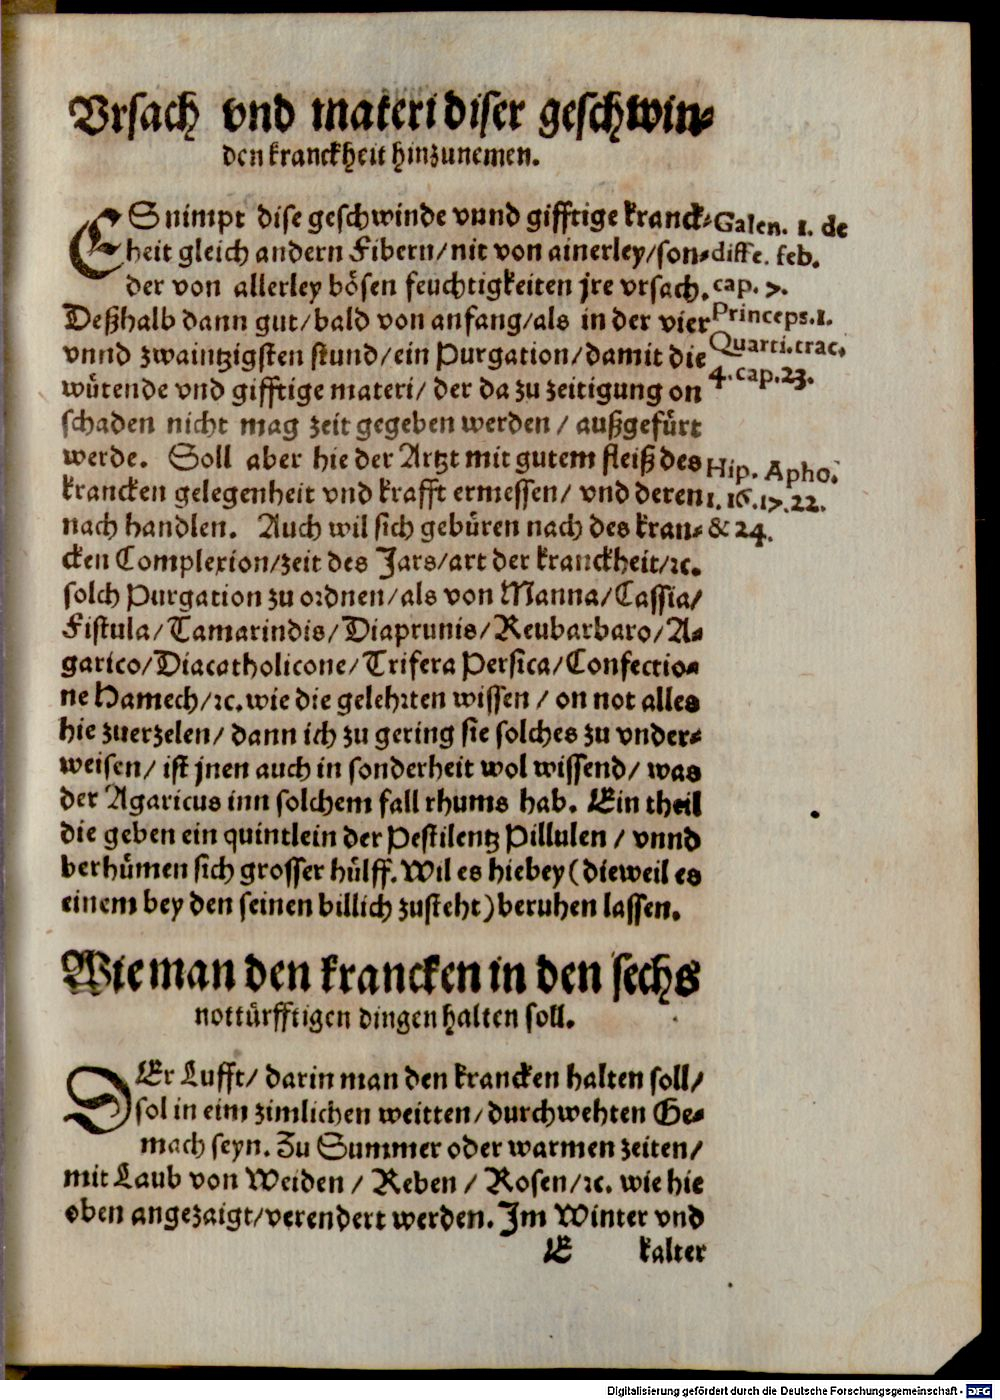 Vrsach vnd materi diser geschwin-
den kranckheit hinzunemen.
ES nimpt dise geschwinde vnnd gifftige kranck-
heit gleich andern Fibern/nit von ainerley/son-
der von allerley bösen feuchtigkeiten jre vrsach.
Deßhalb dann gut/bald von anfang/als in der vier
vnnd zwaintzigsten stund/ein Purgation/damit die
wütende vnd gifftige materi/ der da zu zeitigung on
schaden nicht mag zeit gegeben werden/ außgefürt
werde. Soll aber hie der Artzt mit gutem fleiß des
krancken gelegenheit vnd krafft ermessen/ vnd deren
nach handlen. Auch wil sich gebüren nach des kran-
cken Complexion/zeit des Jars/art der kranckheit/ꝛc.
solch Purgation zu ordnen/als von Manna/Cassia/
Fistula/Tamarindis/Diaprunis/Reubarbaro/A-
garico/Diacatholicone/Trifera Persica/Confectio-
ne Hamech/ꝛc. wie die gelehrten wissen/ on not alles
hie zuerzelen/ dann ich zu gering sie solches zu vnder-
weisen/ ist jnen auch in sonderheit wol wissend/ was
der Agaricus inn solchem fall rhums hab. Ein theil
die geben ein quintlein der Pestilentz Pillulen/ vnnd
berhümen sich grosser hülff. Wil es hiebey (dieweil es
einem bey den seinen billich zusteht) beruhen lassen.
Galen. 1. de
diffe. feb.
cap. 7.
Princeps.1.
Quarti.trac.
4.cap.23.
Hip. Apho.
1. 16.17.22.
& 24.
Wie man den krancken in den sechs
nottürfftigen dingen halten soll.
DEr Lufft/ darin man den krancken halten soll/
sol in eim zimlichen weitten/durchwehten Ge-
mach seyn. Zu Summer oder warmen zeiten/
mit Laub von Weiden/ Reben/ Rosen/ꝛc. wie hie
oben angezaigt/verendert werden. Im Winter vnd
E kalter
Digitalisierung gefördert durch die Deutsche Forschungsgemeinschaft - DFG